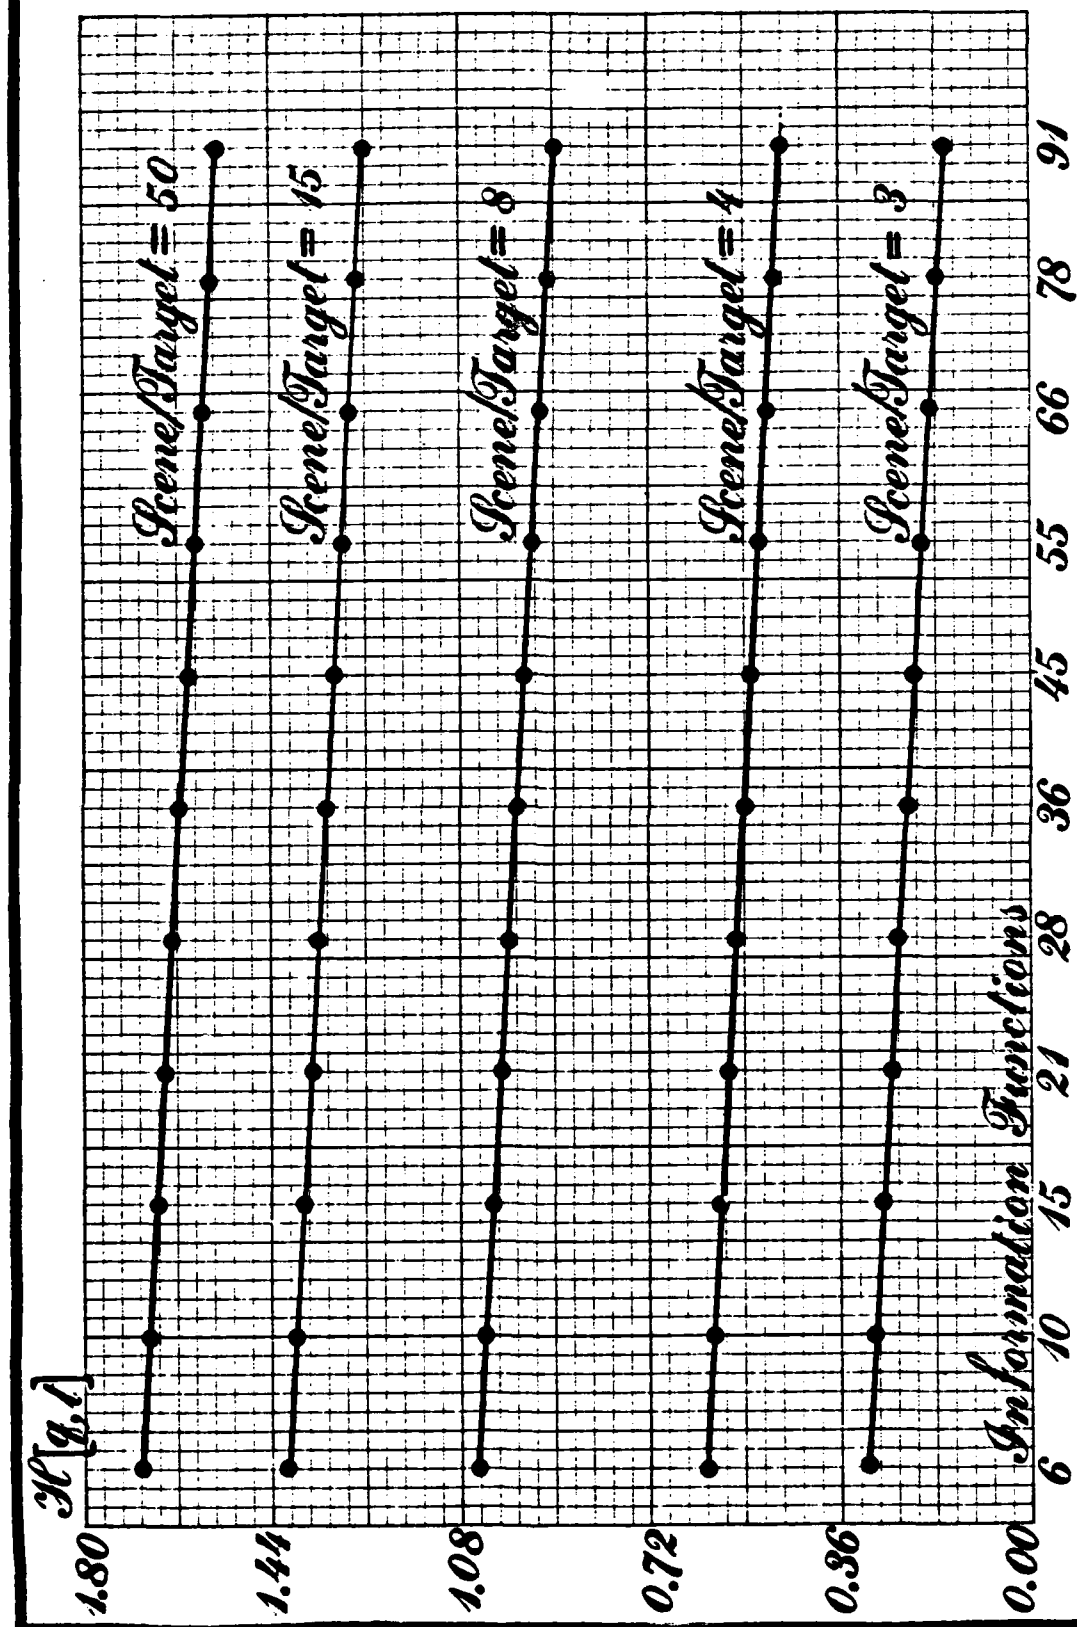 ℋ[q,t]
1.80
1.44
1.08
0.72
0.36
0.00
Scene/Target = 50
Scene/Target = 15
Scene/Target = 8
Scene/Target = 4
Scene/Target = 3
Information Functions
6 10 15 21 28 36 45 55 66 78 91